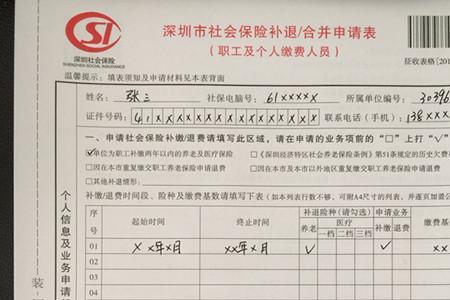 深圳市社会保险补退/合并申请表
(职工及个人缴费人员)
CSI
深圳社会保险
SHENZHEN SOCIAL INSURANCE
征收表格[201
温馨提示：填表须知及申请材料见本表背面
姓名：张三 社保电脑号：61xxxxx 所属单位编号：30396
证件号码：41xxxxxxxxxxxxxxxx 联系电话（手机）：138xxx
一、申请社会保险补缴/退费请填写此区域，请在申请的业务项前的"□"上打"√"
☑单位为职工补缴两年以内的养老及医疗保险 □《深圳经济特区社会养老保险条例》第51条规定的历史欠费
□因在本市重复缴交职工养老保险申请退费 □因在本市及本市以外地区重复缴交职工养老保险申请退费
□其他补退情形：
补缴/退费时间段、险种及缴费基数请填写下表（如本列表行数不够，可附A4尺寸的列表，并逐页加盖公
序号 起始时间 终止时间 补退险种(请勾选) 申请业务 缴费
养老 医疗 补缴 退费
一档 二档 三档
01 xx年x月 xx年x月 √ √ xx
02
03
个人信息及业务申请
装